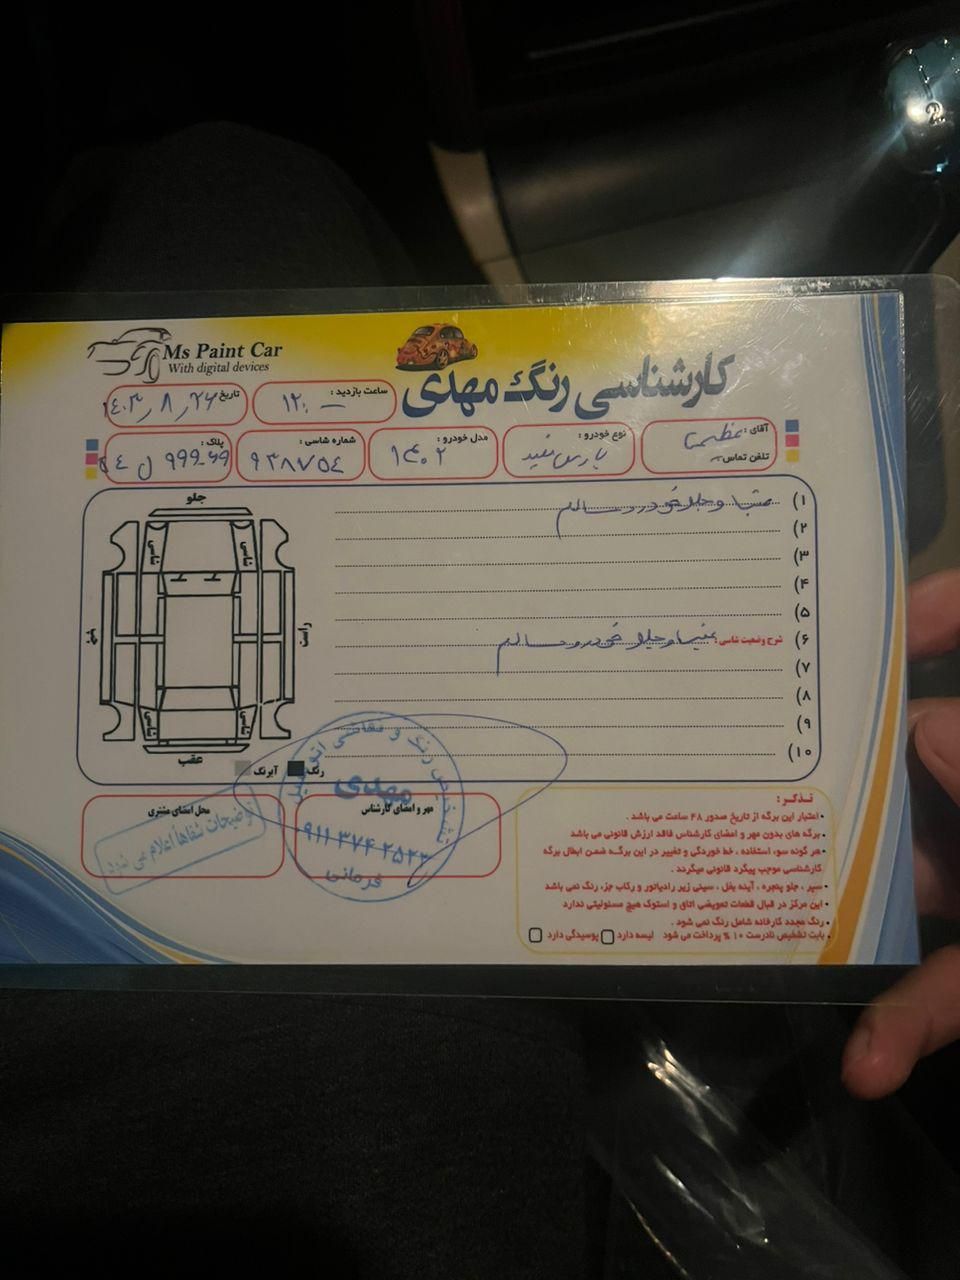 Ms Paint Car
With digital devices
کارشناسی رنگ مهدی
ساعت بازدید : ۱۲:ـــ
تاریخ ۱۴۰۳٫۸٫۲۶
آقای :
تلفن تماس :
نوع خودرو : پارس سفید
مدل خودرو : ۱۴۰۲
شماره شاسی : ۹۳۸۷۵۴
پلاک : ل ۹۹۹-۶۹
جلو
شاسی
شاسی
چپ
راست
شاسی
شاسی
عقب
رنگ
آبرنگ
۱) عقب و جلو خودرو سالم
۲)
۳)
۴)
۵)
۶) شرح وضعیت شاسی : عقب و جلو خودرو سالم
۷)
۸)
۹)
۱۰)
محل امضای مشتری
مهر و امضای کارشناس
توضیحات شفاهاً اعلام می شود
تشخیص رنگ و نقاشی اتومبیل
مهدی
۰۹۱۱ ۳۷۴ ۲۵۲۳
فرمانی
تذکر :
• اعتبار این برگه از تاریخ صدور ۴۸ ساعت می باشد .
• برگه های بدون مهر و امضای کارشناس فاقد ارزش قانونی می باشد
• هر گونه سوء استفاده ، خط خوردگی و تغییر در این برگه ضمن ابطال برگه
کارشناسی موجب پیگرد قانونی میگردد .
• سپر ، جلو پنجره ، آینه بغل ، سینی زیر رادیاتور و رکاب جزء رنگ نمی باشد
• این مرکز در قبال قطعات تعویضی اتاق و استوک هیچ مسئولیتی ندارد
• رنگ مجدد کارخانه شامل رنگ نمی شود .
• بابت تشخیص نادرست ۱۰ % پرداخت می شود لیسه دارد پوسیدگی دارد